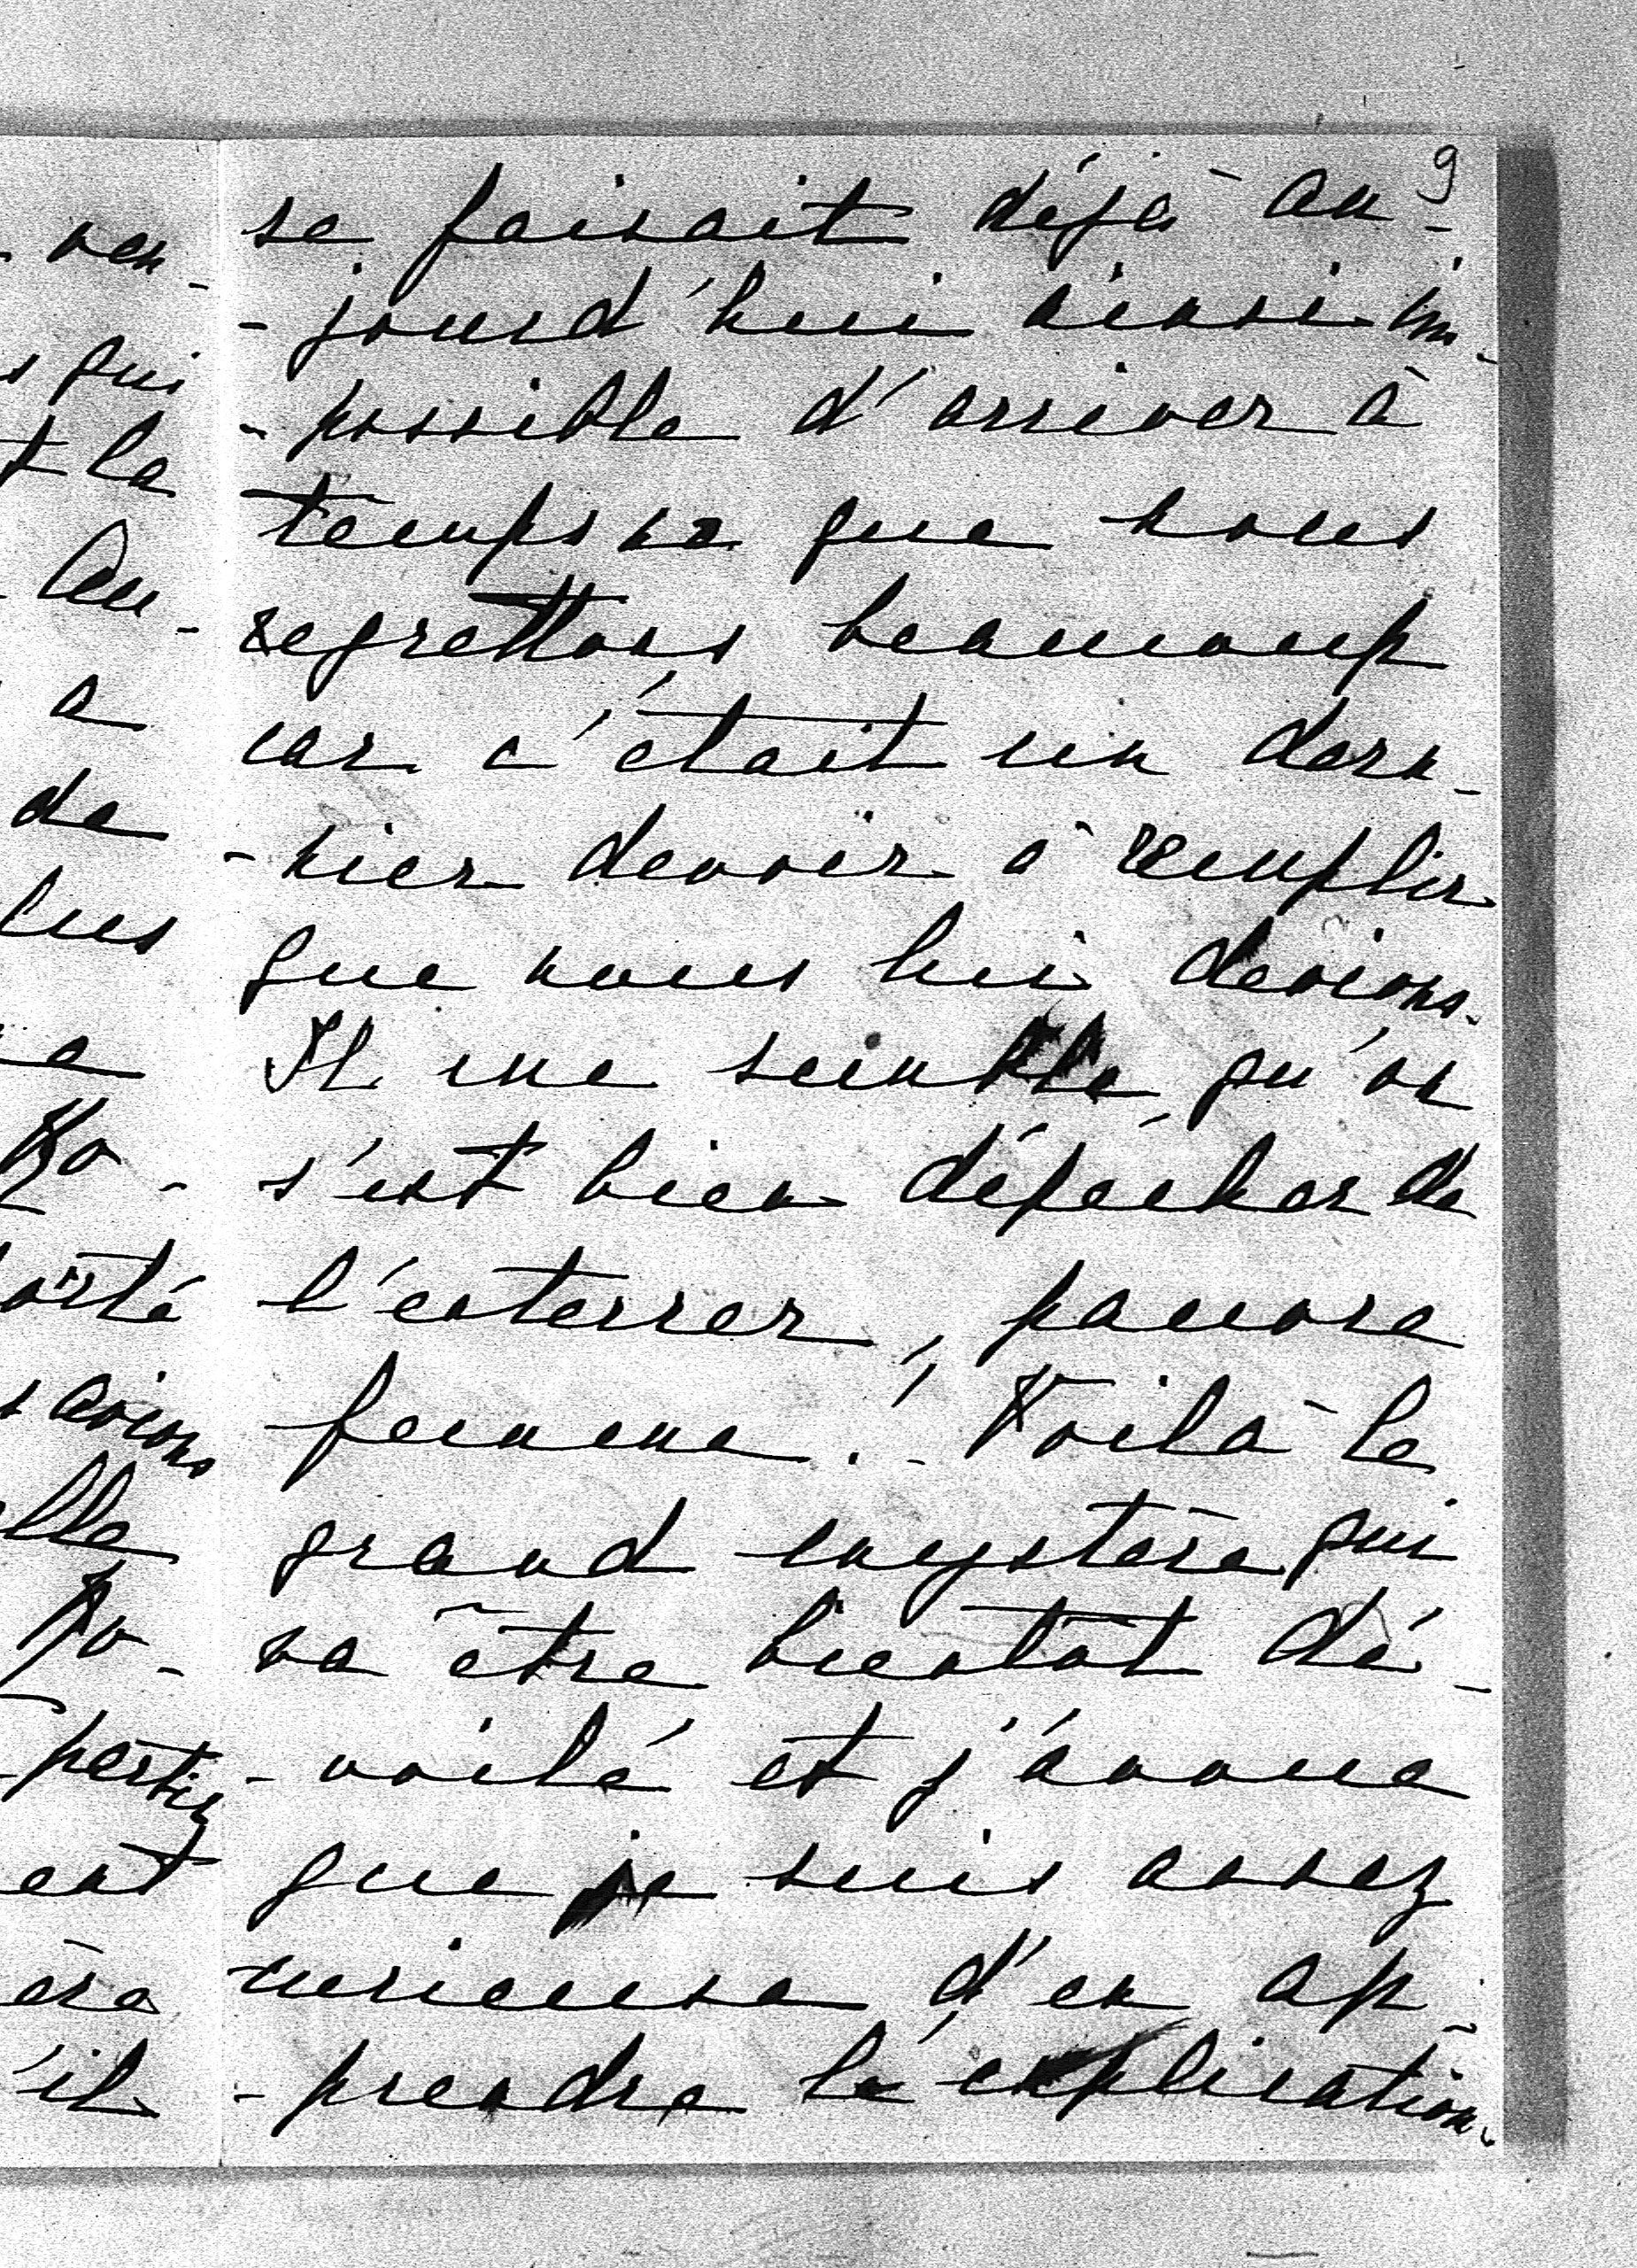 9
se faisait déjà au-
- jourd'hui ainsi im-
- possible d'arriver à
temps que nous
regrettons beaucoup
car c'était un dern-
- nier devoir à remplir
que nous lui devions.
Il me semble qu'on
s'est bien dépêcher de
l'enterrer, pauvre
femme! Voilà le
grand mystère qui
va être bientôt dé-
- voilé et j'avoue
que je suis assez
curieuse d'en ap-
- prendre l'explication.
ven-
qui
la
Au-
a
de
lus
Ko-
orté
avions
elle
Ko-
partir
ent
ère
'il